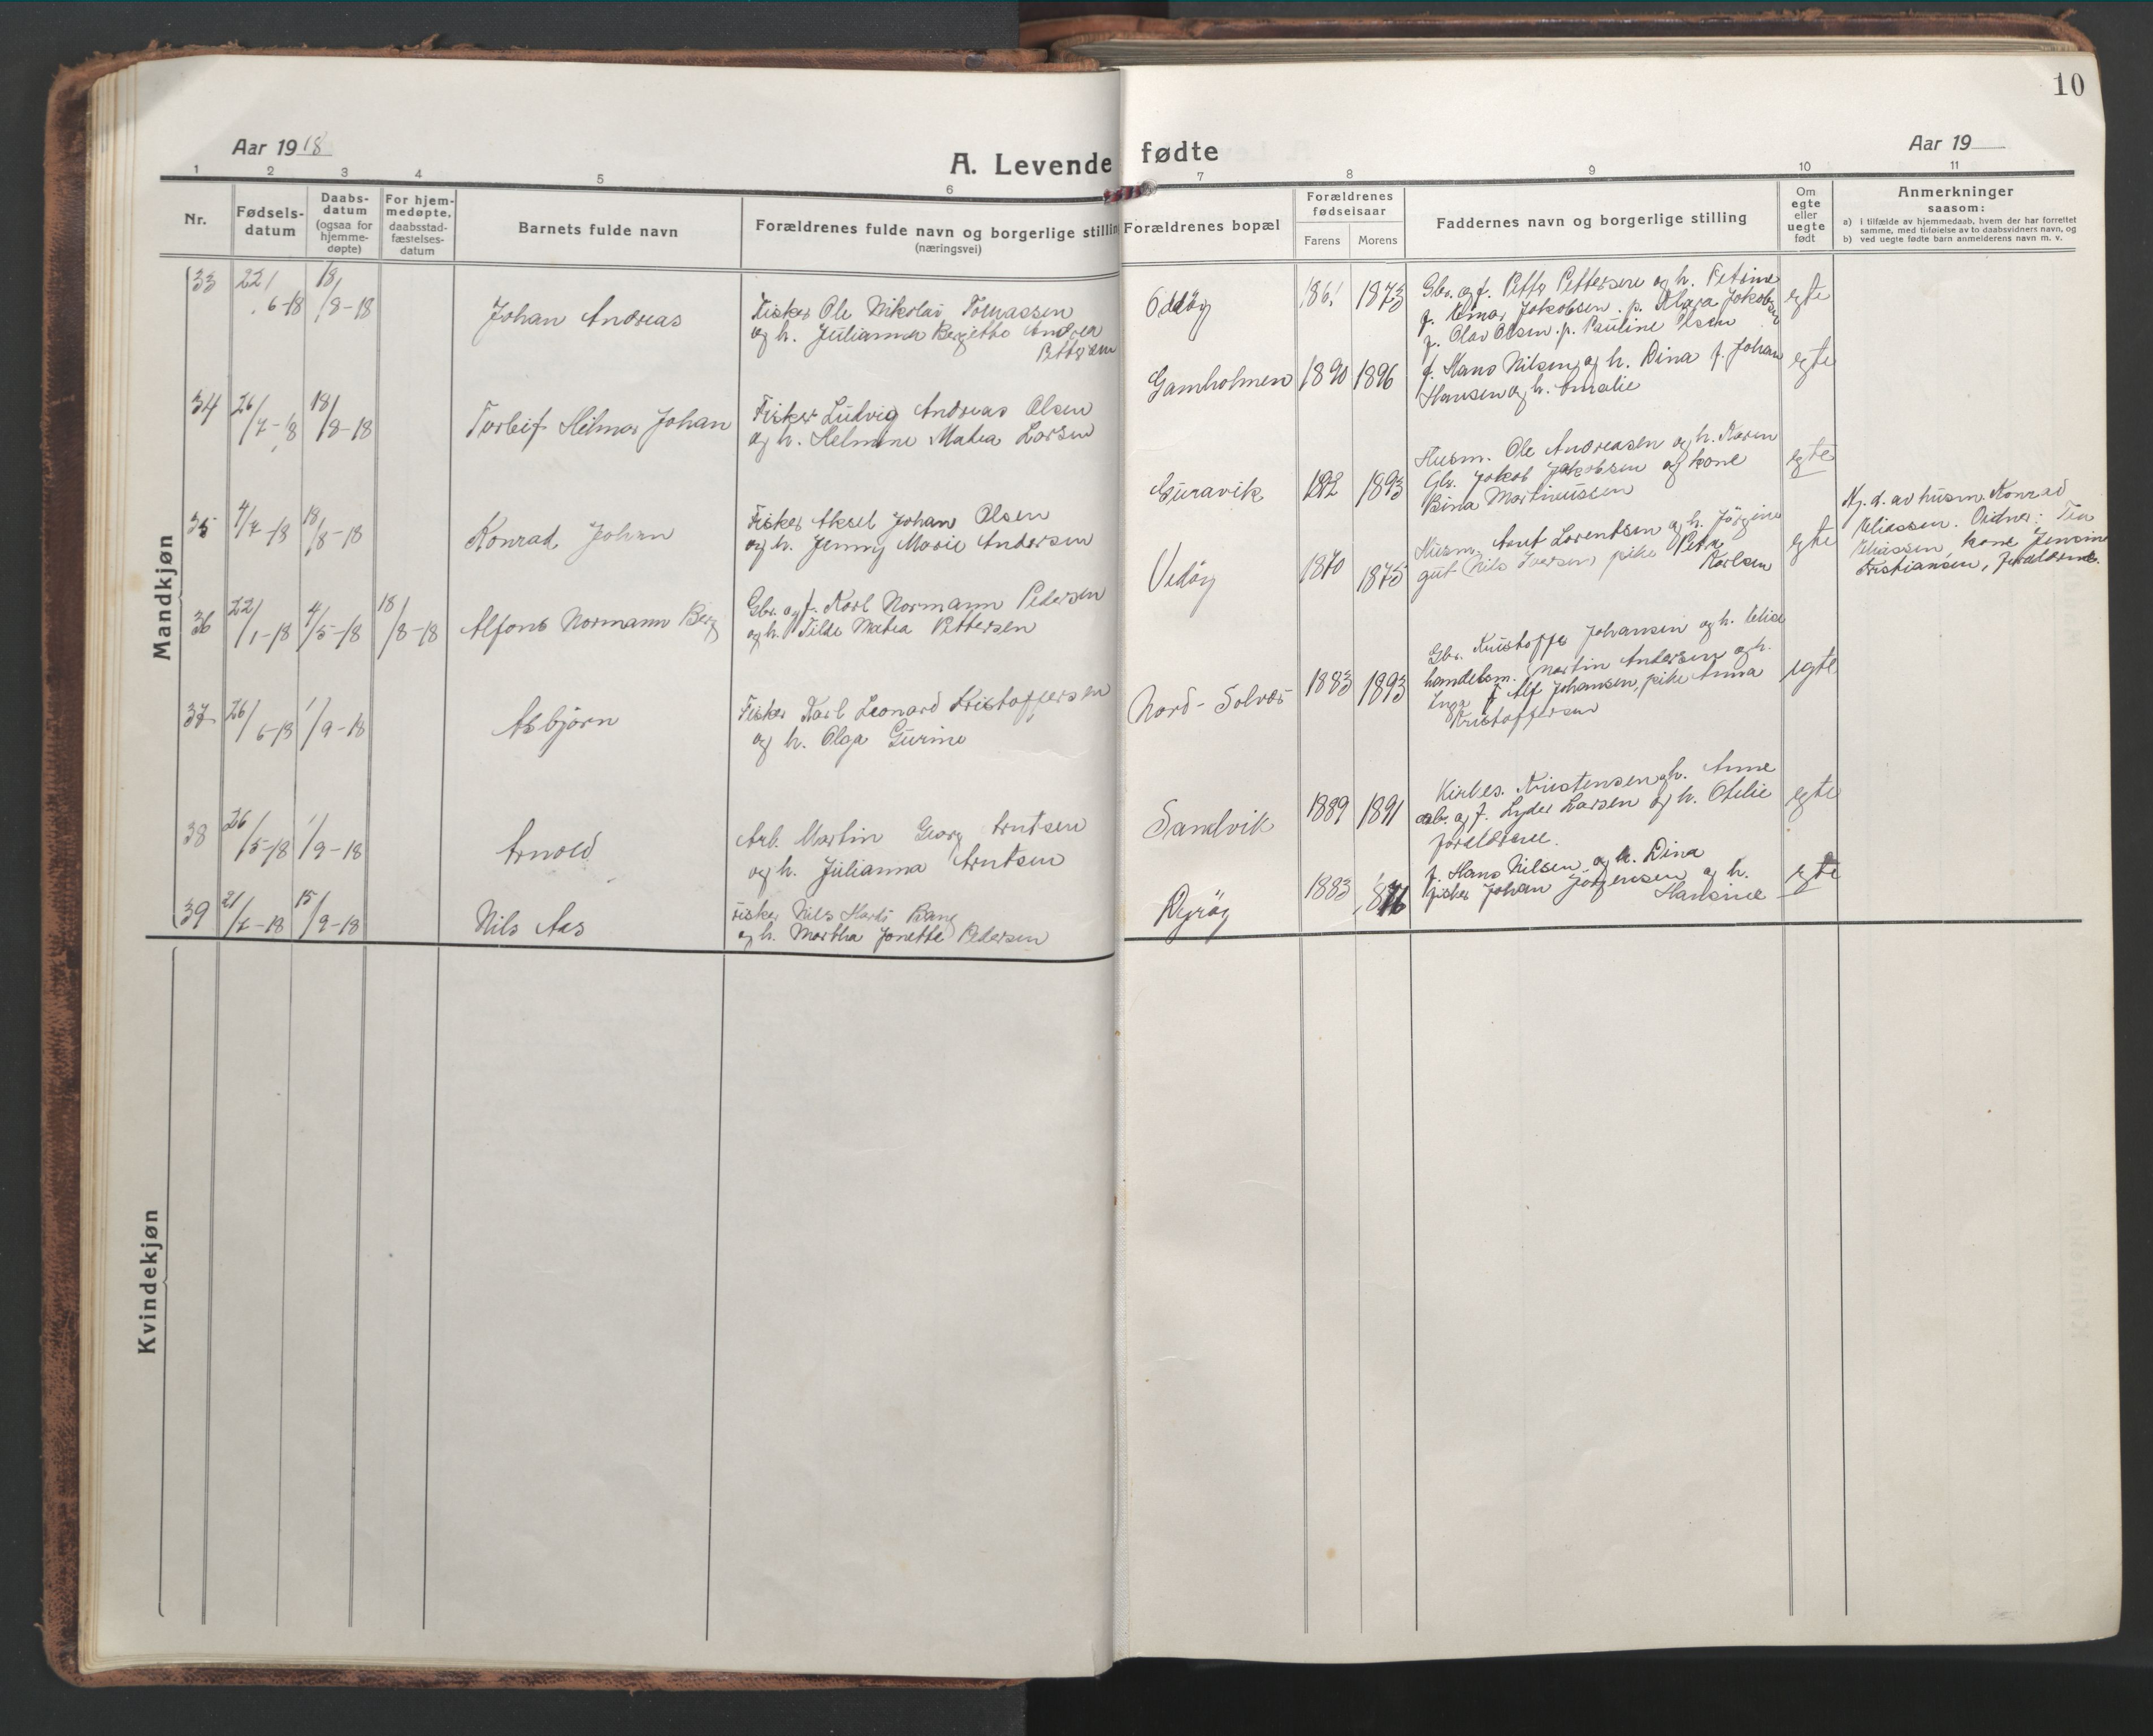 10
Aar 1918
A. Levende fødte
Aar 19
1 2 3 4 5 6 7 8 9 10 11
Nr.
Fødsels-
datum
Daabs-
datum
(ogsaa for
hjemme-
døpte)
For hjem-
medøpte,
daabsstad-
fæstelses-
datum
Barnets fulde navn
Forældrenes fulde navn og borgerlige stillin
(næringsvei)
Forældrenes bopæl
Forældrenes
fødselsaar
Farens Morens
Faddernes navn og borgerlige stilling
Om
egte
eller
uegte
født
Anmerkninger
saasom:
a) i tilfælde av hjemmedaab, hvem der har forrettet
samme, med tilføielse av to daabsvidners navn, og
b) ved uegte fødte barn anmelderens navn m. v.
Mandkjøn
33 22/6-18 18/8-18 Johan Andreas
Fisker Ole Nikolai Tomassen
og h. Julianna Bergethe Andrea
Pettersen
Oddöy 1861 1873
Gbr. og f. Petter Pettersen og h. Petrine
f. Einar Jakobsen. p. Klara Jakobsen
f. Olav Olsen. p. Pauline Olsen
egte
34 26/7-18 18/8-18 Torleif Hilmar Johan
Fisker Ludvig Andreas Olsen
og h. Helmine Matea Larsen
Gamholmen 1890 1896
f. Hans Nilsen og h. Dina f. Johan
Hansen og h. Amalie
egte
35 4/7-18 18/8-18 Konrad Johan
Fisker Aksel Johan Olsen
og h. Jenny Marie Andersen
Guravik 1892 1893
Husm. Ole Andreasen og h. Karen
Gbr. Jakob Jakobsen og kone
Bina Martinussen
egte
36 22/1-18 4/5-18 18/8-18 Alfons Normann Berg
Gbr. og f. Karl Normann Pedersen
og h. Tilde Matea Pettersen
Vedöy 1870 1875
Husm. Arnt Lorentsen og h. Jörgine
gut Nils Iversen, pike Petra
Karlsen
egte
Hj. d. av husm. Konrad
Eliassen. Vidner: Tea
Eliassen, kone Jensine
Kristiansen, forældrene.
37 26/6-18 1/9-18 Asbjörn
Fisker Karl Leonard Kristoffersen
og h. Olga Gurine
Nord-Solvær 1883 1893
Gbr. Kristoffer Johansen og h. Elise
handelsm. Martin Andersen og h.
Inga f Alf Johansen, pike Anna
Kristoffersen
egte
38 26/5-18 1/9-18 Arnold
Arb. Martin Georg Arntsen
og h. Julianna Arntsen
Sandvik 1889 1891
Kirkes. Kristensen og h. Anne
arb. og f. Lyder Larsen og h. Otelie
forældrene.
egte
39 21/7-18 15/9-18 Nils Aas
Fisker Nils Hardi Bang
og h. Martha Jonette Pedersen
Dyröy 1883 1876
f. Hans Nilsen og h. Dina
fisker Johan Jörgensen og h.
Hansine
egte
Kvindekjøn